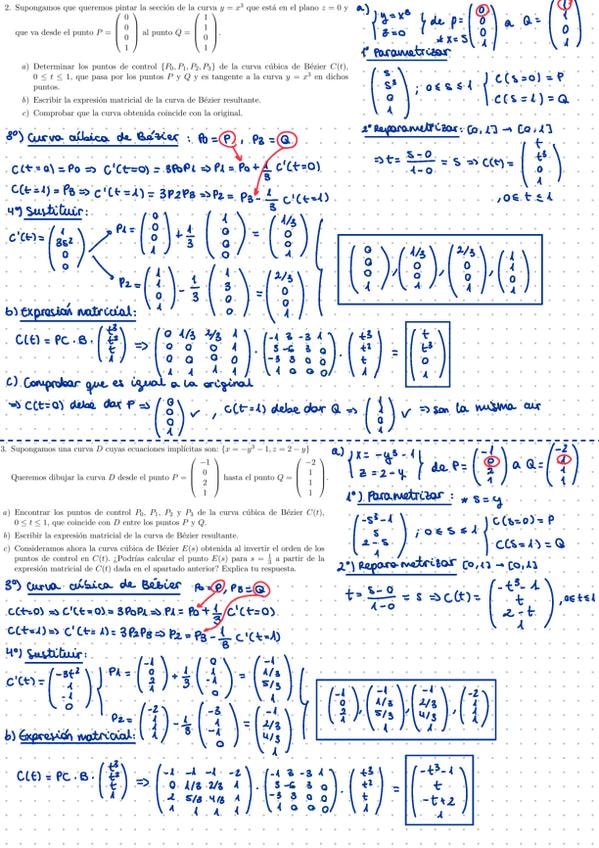 2. Supongamos que queremos pintar la sección de la curva y = x³ que está en el plano z = 0 y
que va desde el punto P = (0 0 0 1) al punto Q = (1 1 0 1).
a) Determinar los puntos de control {P₀, P₁, P₂, P₃} de la curva cúbica de Bézier C(t),
0 ≤ t ≤ 1, que pasa por los puntos P y Q y es tangente a la curva y = x³ en dichos
puntos.
b) Escribir la expresión matricial de la curva de Bézier resultante.
c) Comprobar que la curva obtenida coincide con la original.
a) { y = x³ z = 0 } de P = (0 0 0 1) a Q = (1 1 0 1)
* x = s
1º Parametrizar
(s s³ 0 1) ; 0 ≤ s ≤ 1 { C(s=0) = P
C(s=1) = Q
2º Reparametrizar: [0,1] → [0,1]
⇒ t = (s-0)/(1-0) = s ⇒ C(t) = (t t³ 0 1)
, 0 ≤ t ≤ 1
3º) Curva cúbica de Bézier : P0 = P , P3 = Q
C(t=0) = P0 ⇒ C'(t=0) = 3P0P1 ⇒ P1 = P0 + 1/3 C'(t=0)
C(t=1) = P3 ⇒ C'(t=1) = 3P2P3 ⇒ P2 = P3 - 1/3 C'(t=1)
4º) Sustituir:
C'(t) = (1 3t² 0 0)
P1 = (0 0 0 1) + 1/3 (1 0 0 0) = (1/3 0 0 1)
P2 = (1 1 0 1) - 1/3 (1 3 0 0) = (2/3 0 0 1)
(0 0 0 1), (1/3 0 0 1), (2/3 0 0 1), (1 1 0 1)
b) Expresión matricial:
C(t) = PC · B · (t³ t² t 1) ⇒ (0 1/3 2/3 1 0 0 0 1 0 0 0 0 1 1 1 1) · (-1 3 -3 1 3 -6 3 0 -3 3 0 0 1 0 0 0) · (t³ t² t 1) = (t t³ 0 1)
c) Comprobar que es igual a la original
⇒ C(t=0) debe dar P ⇒ (0 0 0 1) ✓ , C(t=1) debe dar Q ⇒ (1 1 0 1) ✓ ⇒ son la misma cur
3. Supongamos una curva D cuyas ecuaciones implícitas son: {x = −y³ − 1, z = 2 − y}
Queremos dibujar la curva D desde el punto P = (−1 0 2 1) hasta el punto Q = (−2 1 1 1).
a) Encontrar los puntos de control P₀, P₁, P₂ y P₃ de la curva cúbica de Bézier C(t),
0 ≤ t ≤ 1, que coincide con D entre los puntos P y Q.
b) Escribir la expresión matricial de la curva de Bézier resultante.
c) Consideramos ahora la curva cúbica de Bézier E(s) obtenida al invertir el orden de los
puntos de control en C(t). ¿Podrías calcular el punto E(s) para s = 1/3 a partir de la
expresión matricial de C(t) dada en el apartado anterior? Explica tu respuesta.
a) { x = -y³ - 1 z = 2 - y } de P = (-1 0 2 1) a Q = (-2 1 1 1)
1º) Parametrizar : * s = y
(-s³-1 s 2-s 1) ; 0 ≤ s ≤ 1 { C(s=0) = P
C(s=1) = Q
2º) Reparametrizar [0,1] → [0,1]
t = (s-0)/(1-0) = s ⇒ C(t) = (-t³-1 t 2-t 1) , 0 ≤ t ≤ 1
3º) Curva cúbica de Bézier P0 = P , P3 = Q
C(t=0) ⇒ C'(t=0) = 3P0P1 ⇒ P1 = P0 + 1/3 C'(t=0)
C(t=1) ⇒ C'(t=1) = 3P2P3 ⇒ P2 = P3 - 1/3 C'(t=1)
4º) Sustituir:
C'(t) = (-3t² 1 -1 0)
P1 = (-1 0 2 1) + 1/3 (0 1 -1 0) = (-1 1/3 5/3 1)
P2 = (-2 1 1 1) - 1/3 (-3 1 -1 0) = (-1 2/3 4/3 1)
(-1 0 2 1), (-1 1/3 5/3 1), (-1 2/3 4/3 1), (-2 1 1 1)
b) Expresión matricial:
C(t) = PC · B · (t³ t² t 1) ⇒ (-1 -1 -1 -2 0 1/3 2/3 1 2 5/3 4/3 1 1 1 1 1) · (-1 3 -3 1 3 -6 3 0 -3 3 0 0 1 0 0 0) · (t³ t² t 1) = (-t³-1 t -t+2 1)